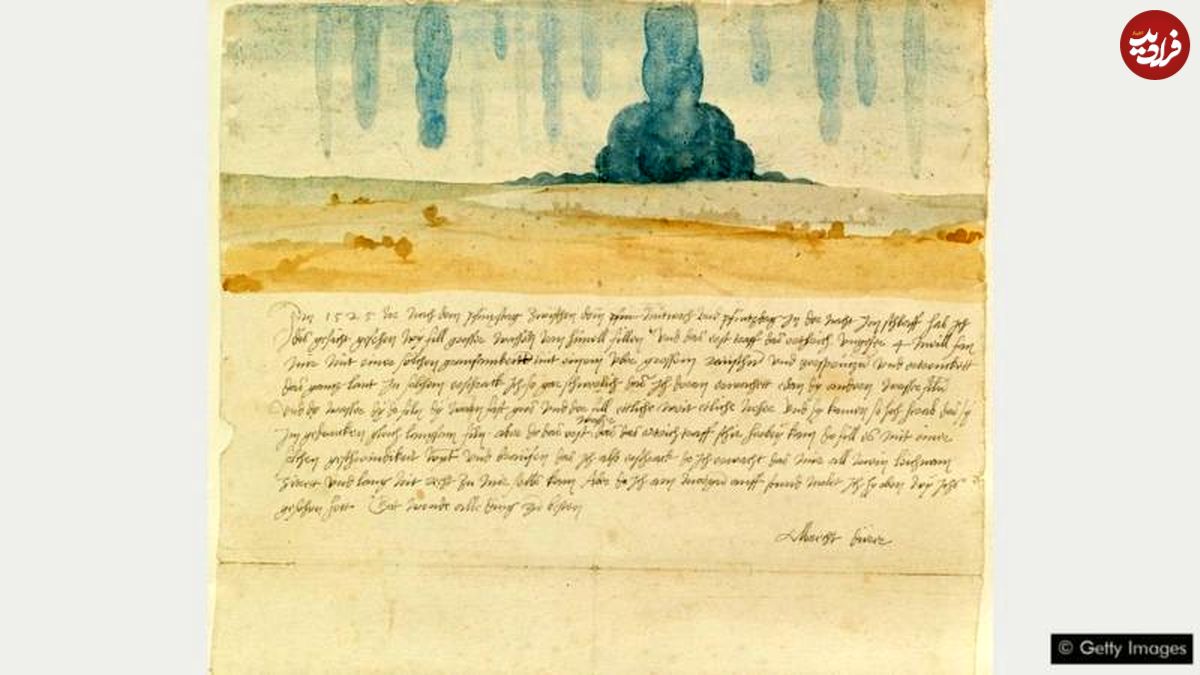 فرادید
Im 1525 Jor nach dem pfinxstag zwischen dem mitwoch und pfintzdag in der nacht im schlaff hab ich
dis gesicht gesehen wy fill grosser wassern vom himell fillen Und das erst traff das erthrich ungefer 4 meill fan
mir mit einer solchen grausamkeitt mit einem uber grossem raüschn und zersprützn und ertrenckett
das gantz lant In solchem erschrack ich so gar schwerlich das ich doran erwachett e dan dy andern wasser filn
und dy wasser dy do filn dy warn fast gros und der fill ettliche weit etliche neher und sy kamen so hoch herab das sy
im gedancken gleich langsam filn aber do das erst wasser das das ertrich traff schir herbey kam do fill es mit einer
solchen geschwindikeit wynt und braüsen das ich also erschrack do ich erwacht das mir all mein leichnam
zitrett und lang nit recht zu mir selbs kam Aber do ich am morgn auff stund molet ich hy oben wy ichs
gesehen hett Got wende alle ding zu besten
Albrecht dürer
© Getty Images